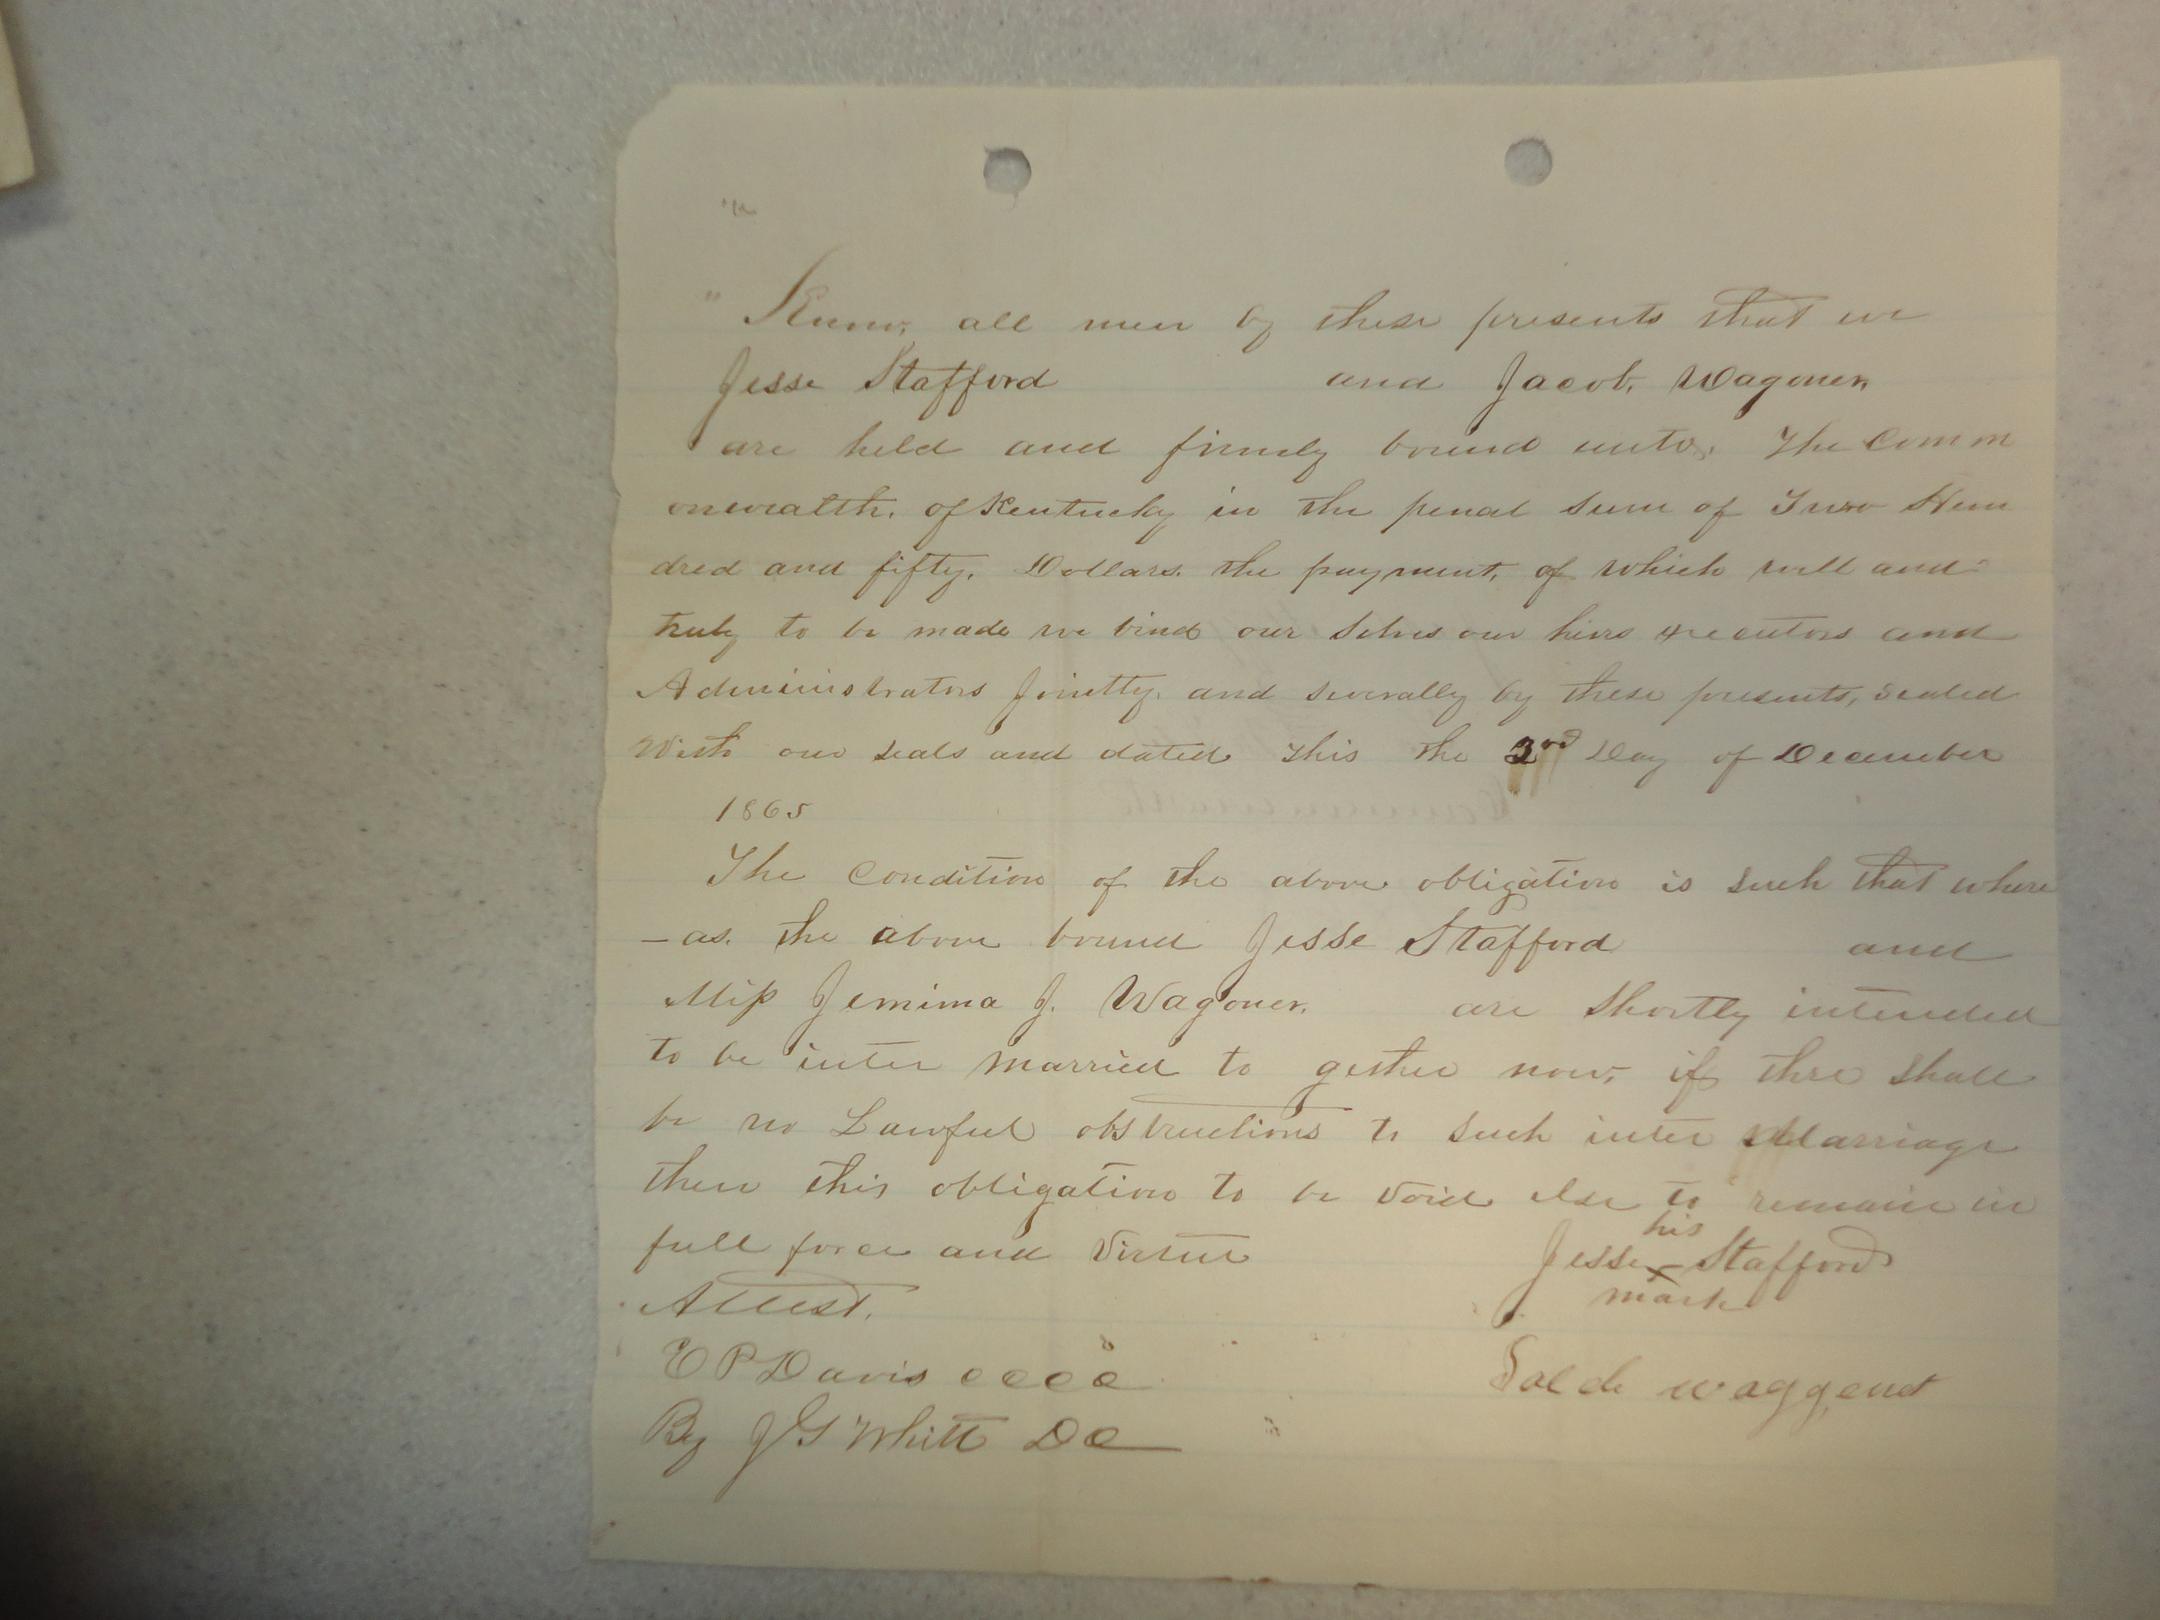 Know, all men by these presents that we
Jesse Stafford and Jacob, Wagoner,
are held and firmly bound unto, The Comm
onwealth, of Kentucky in the penal sum of Two Hun
dred and fifty, Dollars, the payment, of which well and
truly to be made we bind our selves our hiers executors and
Administrators Jointty, and severally by these presents, sealed
With our seals and dated this the Day of December
1865
The Condition of the above obligation is such that where
-as. the above bound Jesse Stafford and
Miss Jemima J. Wagoner, are shortly intended
to be inter married to gether now, if thre shall
be no Lawful obstructions to such inter Marriage
then this obligation to be void else to remain in
full force and Virtue
his
Jesse x Stafford
mark
Attest.
E P Davis CCCC
By J G Whitt DC